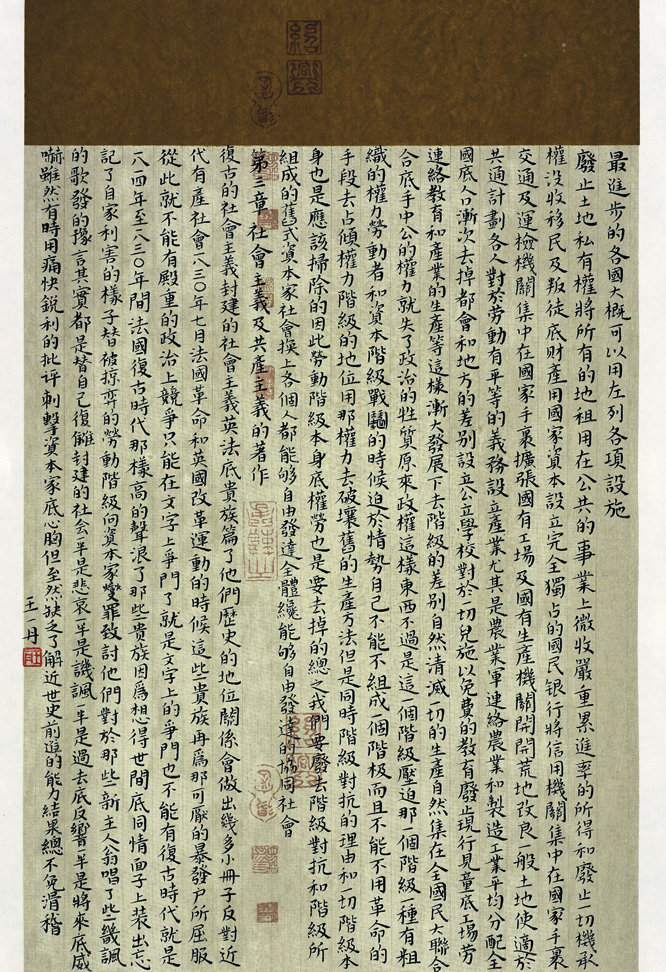 最進步的各國大概可以用左列各項設施
廢止土地私有權將所有的地租用在公共的事業上徵收嚴重累進率的所得和發止一切機承
權沒收移民及叛徒底财產用國家資本設立完全獨占的國民银行將信用機關集中在國家手裏
交通及運檢機關集中在國家手裏擴張國有工场及國有生產機關開開荒地改良一般土地使適於
共通計劃各人對於劳動有平等的義務設立產業尤其是農業軍連絡農業和製造工業平均分配全
國底人口漸次去掉都會和地方的差别設立公立學校對於一切兒施以免費的教育廢止現行見童底工場劳
連絡教育和產業的生產等這樣漸大發展下去階級的差別自然清减一切的生產自然集在全國民大聯合
合底手中公的權力就失了政治的性質原來政權這樣東西不過是這一個階級壓迫那一個階級一種有粗
織的權力勞動者和資本階級戰鬬的時候迫於情勢自己不能不組成一個階极而且不能不用革命的
手段去占傾權力階級的地位用那權力去破壞舊的生產方法但是同時階級對抗的理由和一切階級本
身也是應該掃除的因此勞動階級本身底權勞也是要去掉的總之我們要廢去階級對抗和階级所
組成的舊式資本家社會換上各個人都能够自由發達全體纔能够自由發達的協同社會
第三章社會主義及共產主義的著作
復古的社會主義封建的社會主義英法底貴族篇了他們歷史的地位關係會做出幾多小冊子反對近
代有產社會一八三〇年七月法國革命和英國改革運動的時候這些貴族再爲那可厭的暴發户所屈服
從此就不能有殿重的政治上競爭只能在文字上爭門了就是文字上的爭門也不能有復古時代就是
一八一四年至一八三〇年間法國復古時代那樣高的聲浪了那些貴族因爲想得世間底同情面子上装出忘
記了自家利害的樣子替被掠奪的勞動階級向資本家變罪致討他們對於那些新主人翁唱了些幾諷
的歌發的豫言其實都是替自己復雠封建的社会半是悲哀半是譏諷半是過去底反響半是將來底威
嚇雖然有時用痛快銳利的批评刺擊資本家底心胸但至然缺乏了解近世史前進的能力結果總不免滑稽
王一丹